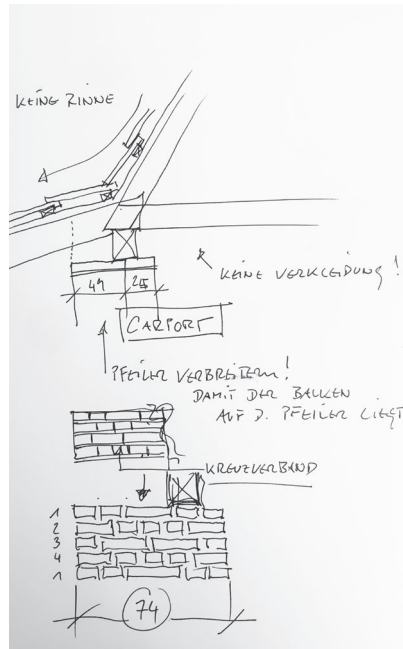 KEINE RINNE
KEINE VERKLEIDUNG!
49 25
CARPORT
PFEILER VERBREITERN!
DAMIT DER BALKEN
AUF D. PFEILER LIEGT
KREUZVERBAND
1
2
3
4
1
74